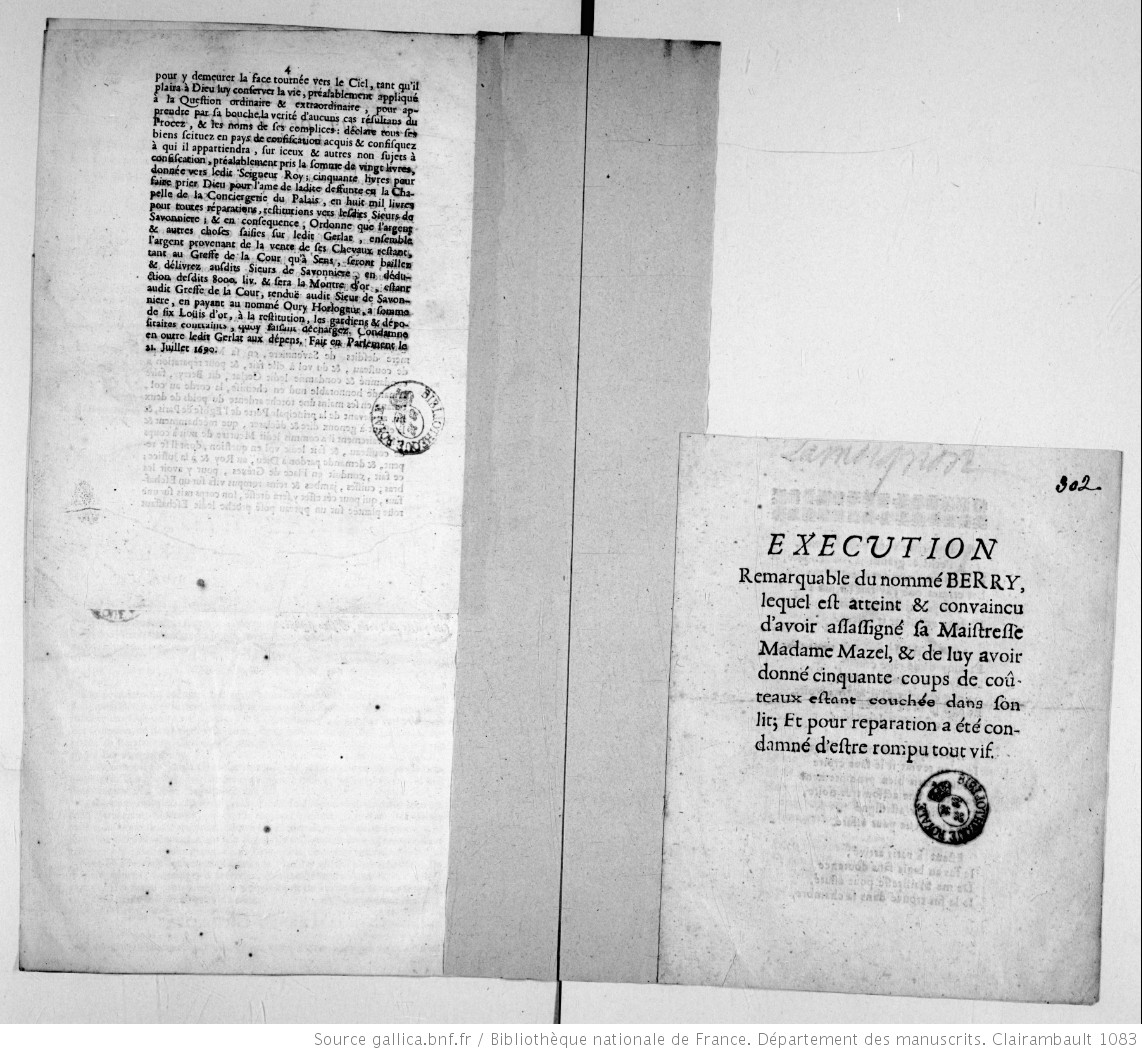 4
pour y demeurer la face tournée vers le Ciel, tant qu'il
plaira à Dieu luy conserver la vie, préalablement appliqué
à la Question ordinaire & extraordinaire, pour ap-
prendre par sa bouche la verité d'aucuns cas résultans du
Procez, & les noms de ses complices: déclare tous ses
biens scituez en pays de confiscation acquis & confisquez
à qui il appartiendra, sur iceux & autres non sujets à
confiscation, préalablement pris la somme de vingt livres,
donnée vers ledit Seigneur Roy; cinquante livres pour
faire prier Dieu pour l'ame de ladite deffunte en la Cha-
pelle de la Conciergerie du Palais, en huit mil livres
pour toutes réparations, restitutions vers lesdits Sieurs de
Savonniere; & en consequence, Ordonne que l'argent
& autres choses saisies sur ledit Gerlat, ensemble
l'argent provenant de la vente de ses Chevaux restant,
tant au Greffe de la Cour qu'à Sens, seront baillez
& délivrez ausdits Sieurs de Savonniere, en dédu-
ction desdits 8000. liv. & sera la Montre d'or, estant
audit Greffe de la Cour, renduë audit Sieur de Savon-
niere, en payant au nommé Oury Horlogeur, a somme
de six Louis d'or, à la restitution, les gardiens & dépo-
sitaires contraints, quoy faisant déchargez. Condamne
en outre ledit Gerlat aux dépens. Fait en Parlement le
21. Juillet 1690.
BIBLIOTHEQUE ROYALE
Lamoignon
302.
EXECUTION
Remarquable du nommé BERRY,
lequel est atteint & convaincu
d'avoir assassigné sa Maistresse
Madame Mazel, & de luy avoir
donné cinquante coups de coû-
teaux estant couchée dans son
lit; Et pour reparation a été con-
damné d'estre rompu tout vif.
BIBLIOTHEQUE ROYALE
Source gallica.bnf.fr / Bibliothèque nationale de France. Département des manuscrits. Clairambault 1083